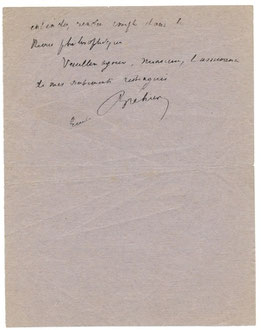 entendez rendre compte dans la
Revue philosophique
Veuillez agréer, Monsieur, l'assurance
de mes sentiments distingués